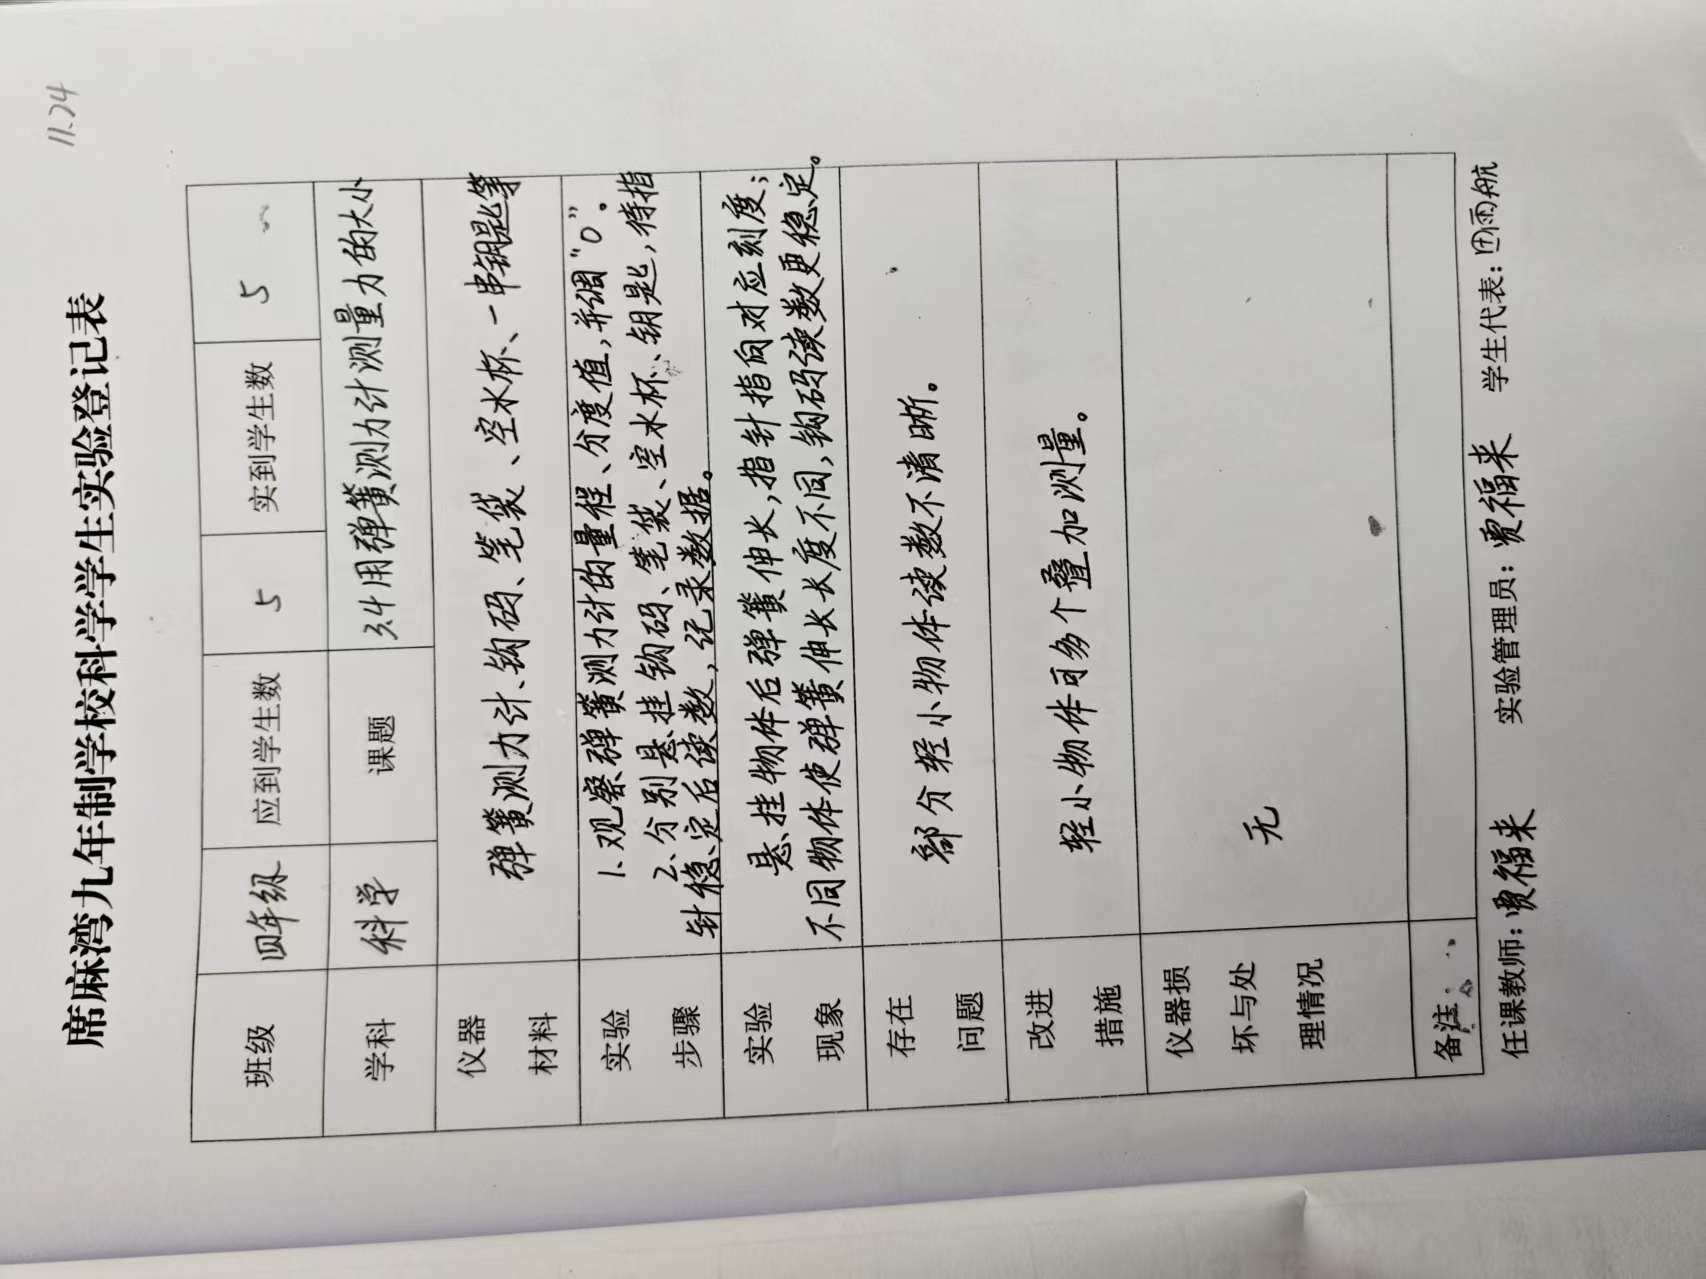 11.24
席麻湾九年制学校科学学生实验登记表
班级 四年级 应到学生数 5 实到学生数 5
学科 科学 课题 3.4用弹簧测力计测量力的大小
仪器材料 弹簧测力计、钩码、笔袋、空水杯、一串钥匙等
实验步骤 1、观察弹簧测力计的量程、分度值,并调“0”。
2、分别悬挂钩码、笔袋、空水杯、钥匙,待指
针稳定后读数,记录数据。
实验现象 悬挂物体后弹簧伸长,指针指向对应刻度;
不同物体使弹簧伸长长度不同,钩码读数更稳定。
存在问题 部分轻小物体读数不清晰。
改进措施 轻小物体可多个叠加测量。
仪器损坏与处理情况 无
备注:
任课教师:贾福来 实验管理员:贾福来 学生代表:田雨航